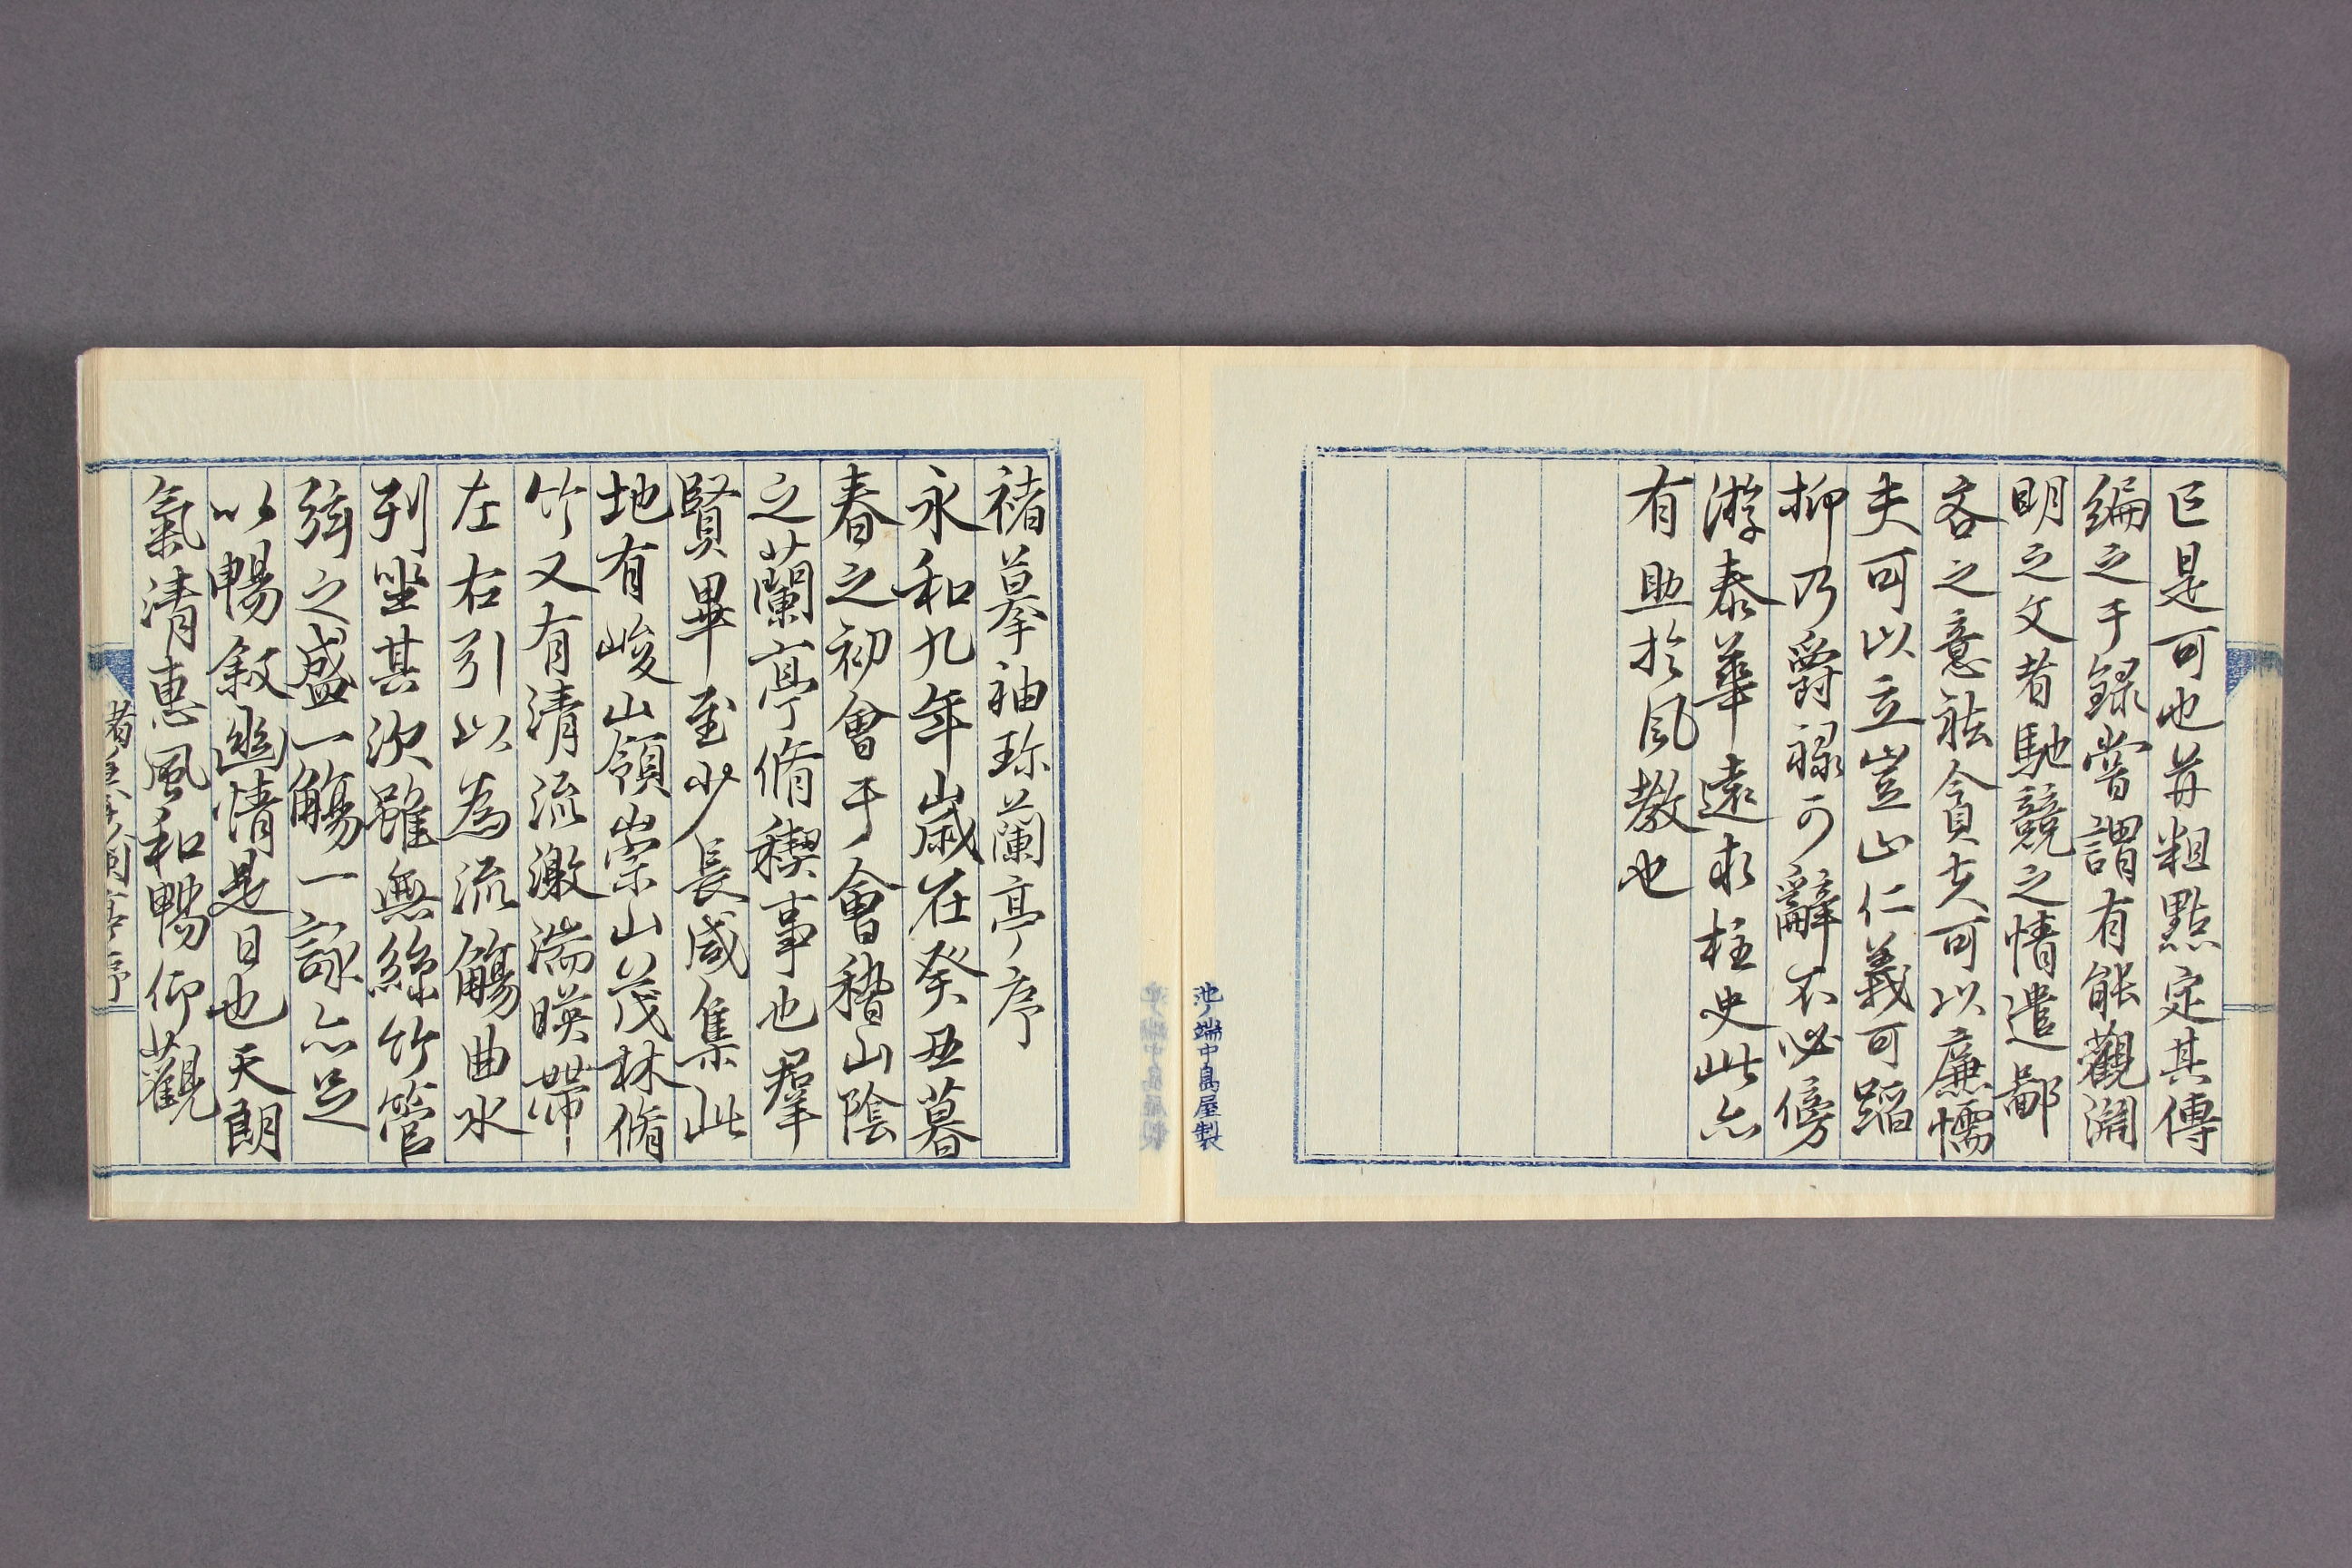 已是可也并粗點定其傳
編之于録嘗謂有能觀淵
明之文者馳競之情遣鄙
吝之意祛貪夫可以廉懦
夫可以立豈止仁義可蹈
抑乃爵禄可辭不必傍
游泰華遠求柱史此亦
有助於風教也
池ノ端中島屋製
褚摹袖珍蘭亭序
永和九年歲在癸丑暮
春之初會于會稽山陰
之蘭亭脩稧事也羣
賢畢至少長咸集此
地有峻山領崇山茂林脩
竹又有清流激湍暎帶
左右引以為流觴曲水
列坐其次雖無絲竹管
弦之盛一觴一詠亦足
以暢敘幽情是日也天朗
氣清惠風和暢仰觀